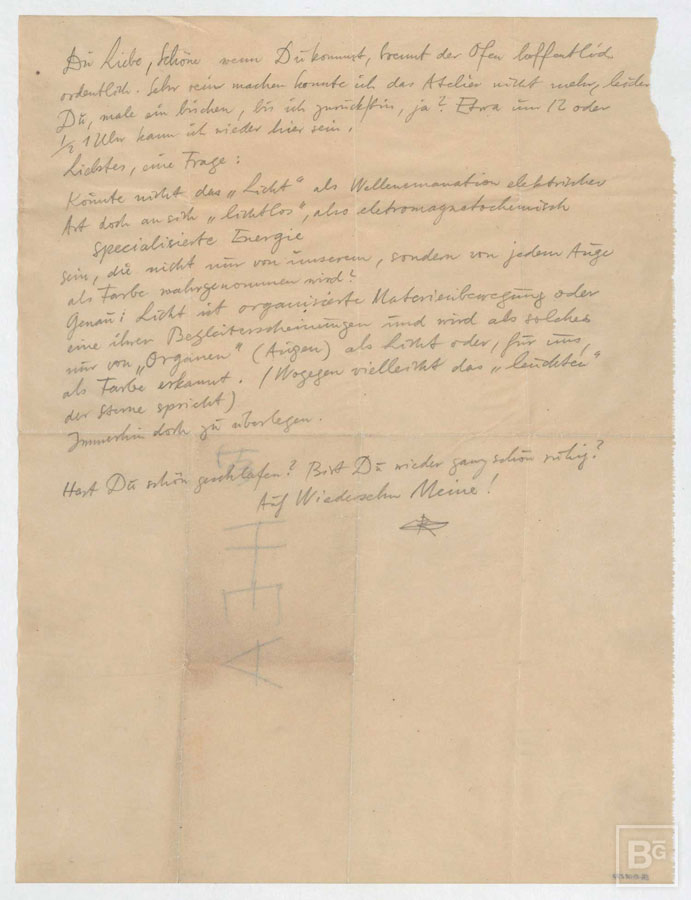 Du Liebe, Schöne wenn Du kommst, brennt der Ofen hoffentlich
ordentlich. Sehr rein machen konnte ich das Atelier nicht mehr, leider
Du, male ein bischen, bis ich zurück bin, ja? Etwa um 12 oder
1/2 1 Uhr kann ich wieder hier sein.
Liebstes, eine Frage:
Könnte nicht das „Licht" als Wellenemanation elektrischer
Art doch an sich „lichtlos", also eletromagnetochemisch
specialisierte Energie
sein, die nicht nur von unserem, sondern von jedem Auge
als Farbe wahrgenommen wird?
Genau: Licht ist organisierte Materienbewegung oder
eine ihrer Begleiterscheinungen und wird als solches
nur von „Organen" (Augen) als Licht oder, für uns,
als Farbe erkannt. (Wogegen vielleicht das „leuchten"
der Sterne spricht)
Immerhin doch zu überlegen.
Hast Du schön geschlafen? Bist Du wieder ganz schön ruhig?
Auf Wiedersehn Meine!
BG